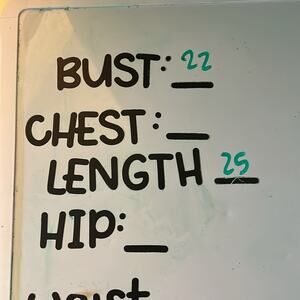 BUST: 22
CHEST: __
LENGTH 25
HIP: __
Waist